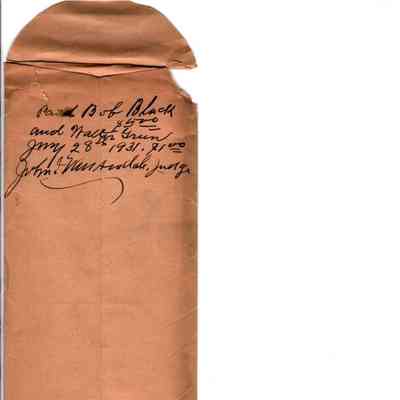 Paid Bob Black
$5.00
and Walter Green
28th 1931. $1.00
John Judge